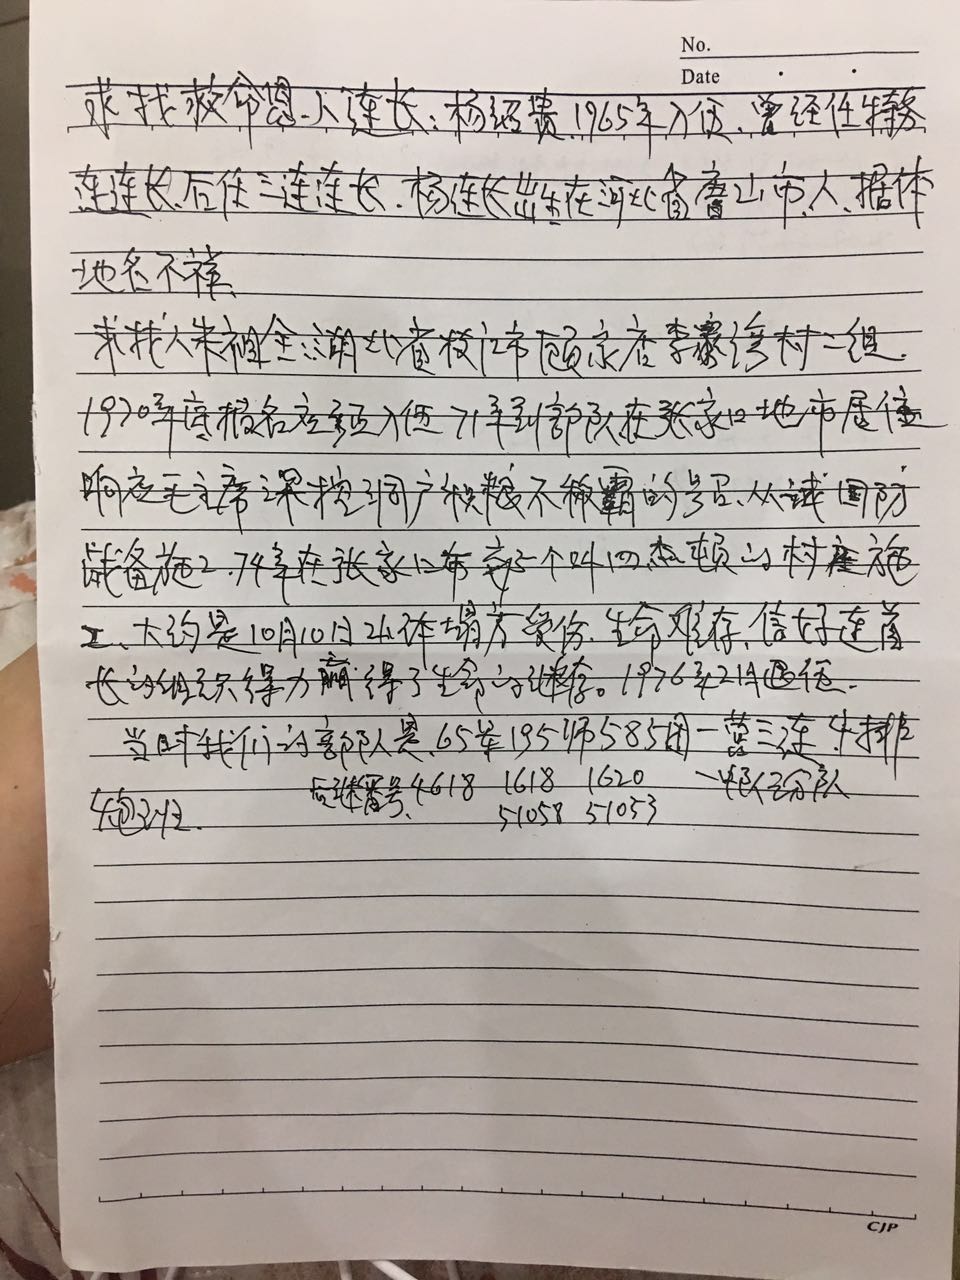 No.
Date
求找救命恩人连长:杨绍贵.1965年入伍、曾经任特务
连连长.后任三连连长.杨连长出生在河北省唐山市人、据体
地名不祥、
求找人朱祖金湖北省枝江市顾家店李家湾村二组.
1970年底报名应征入伍71年到部队在张家口地市居住
响应毛主席深挖洞广积粮不称霸的号召、从试国防
战备施工.74年在张家口市 个叫 屯的村庄施
工、大约是10月10日 体塌方受伤.生命难存、信好连首
长的组织得力赢得了生命的继存。1976年2月退伍.
当时我们的部队是.65军195师585团一营三连
后继番号.4618 1618 1620 一中队三分队
51058 51053